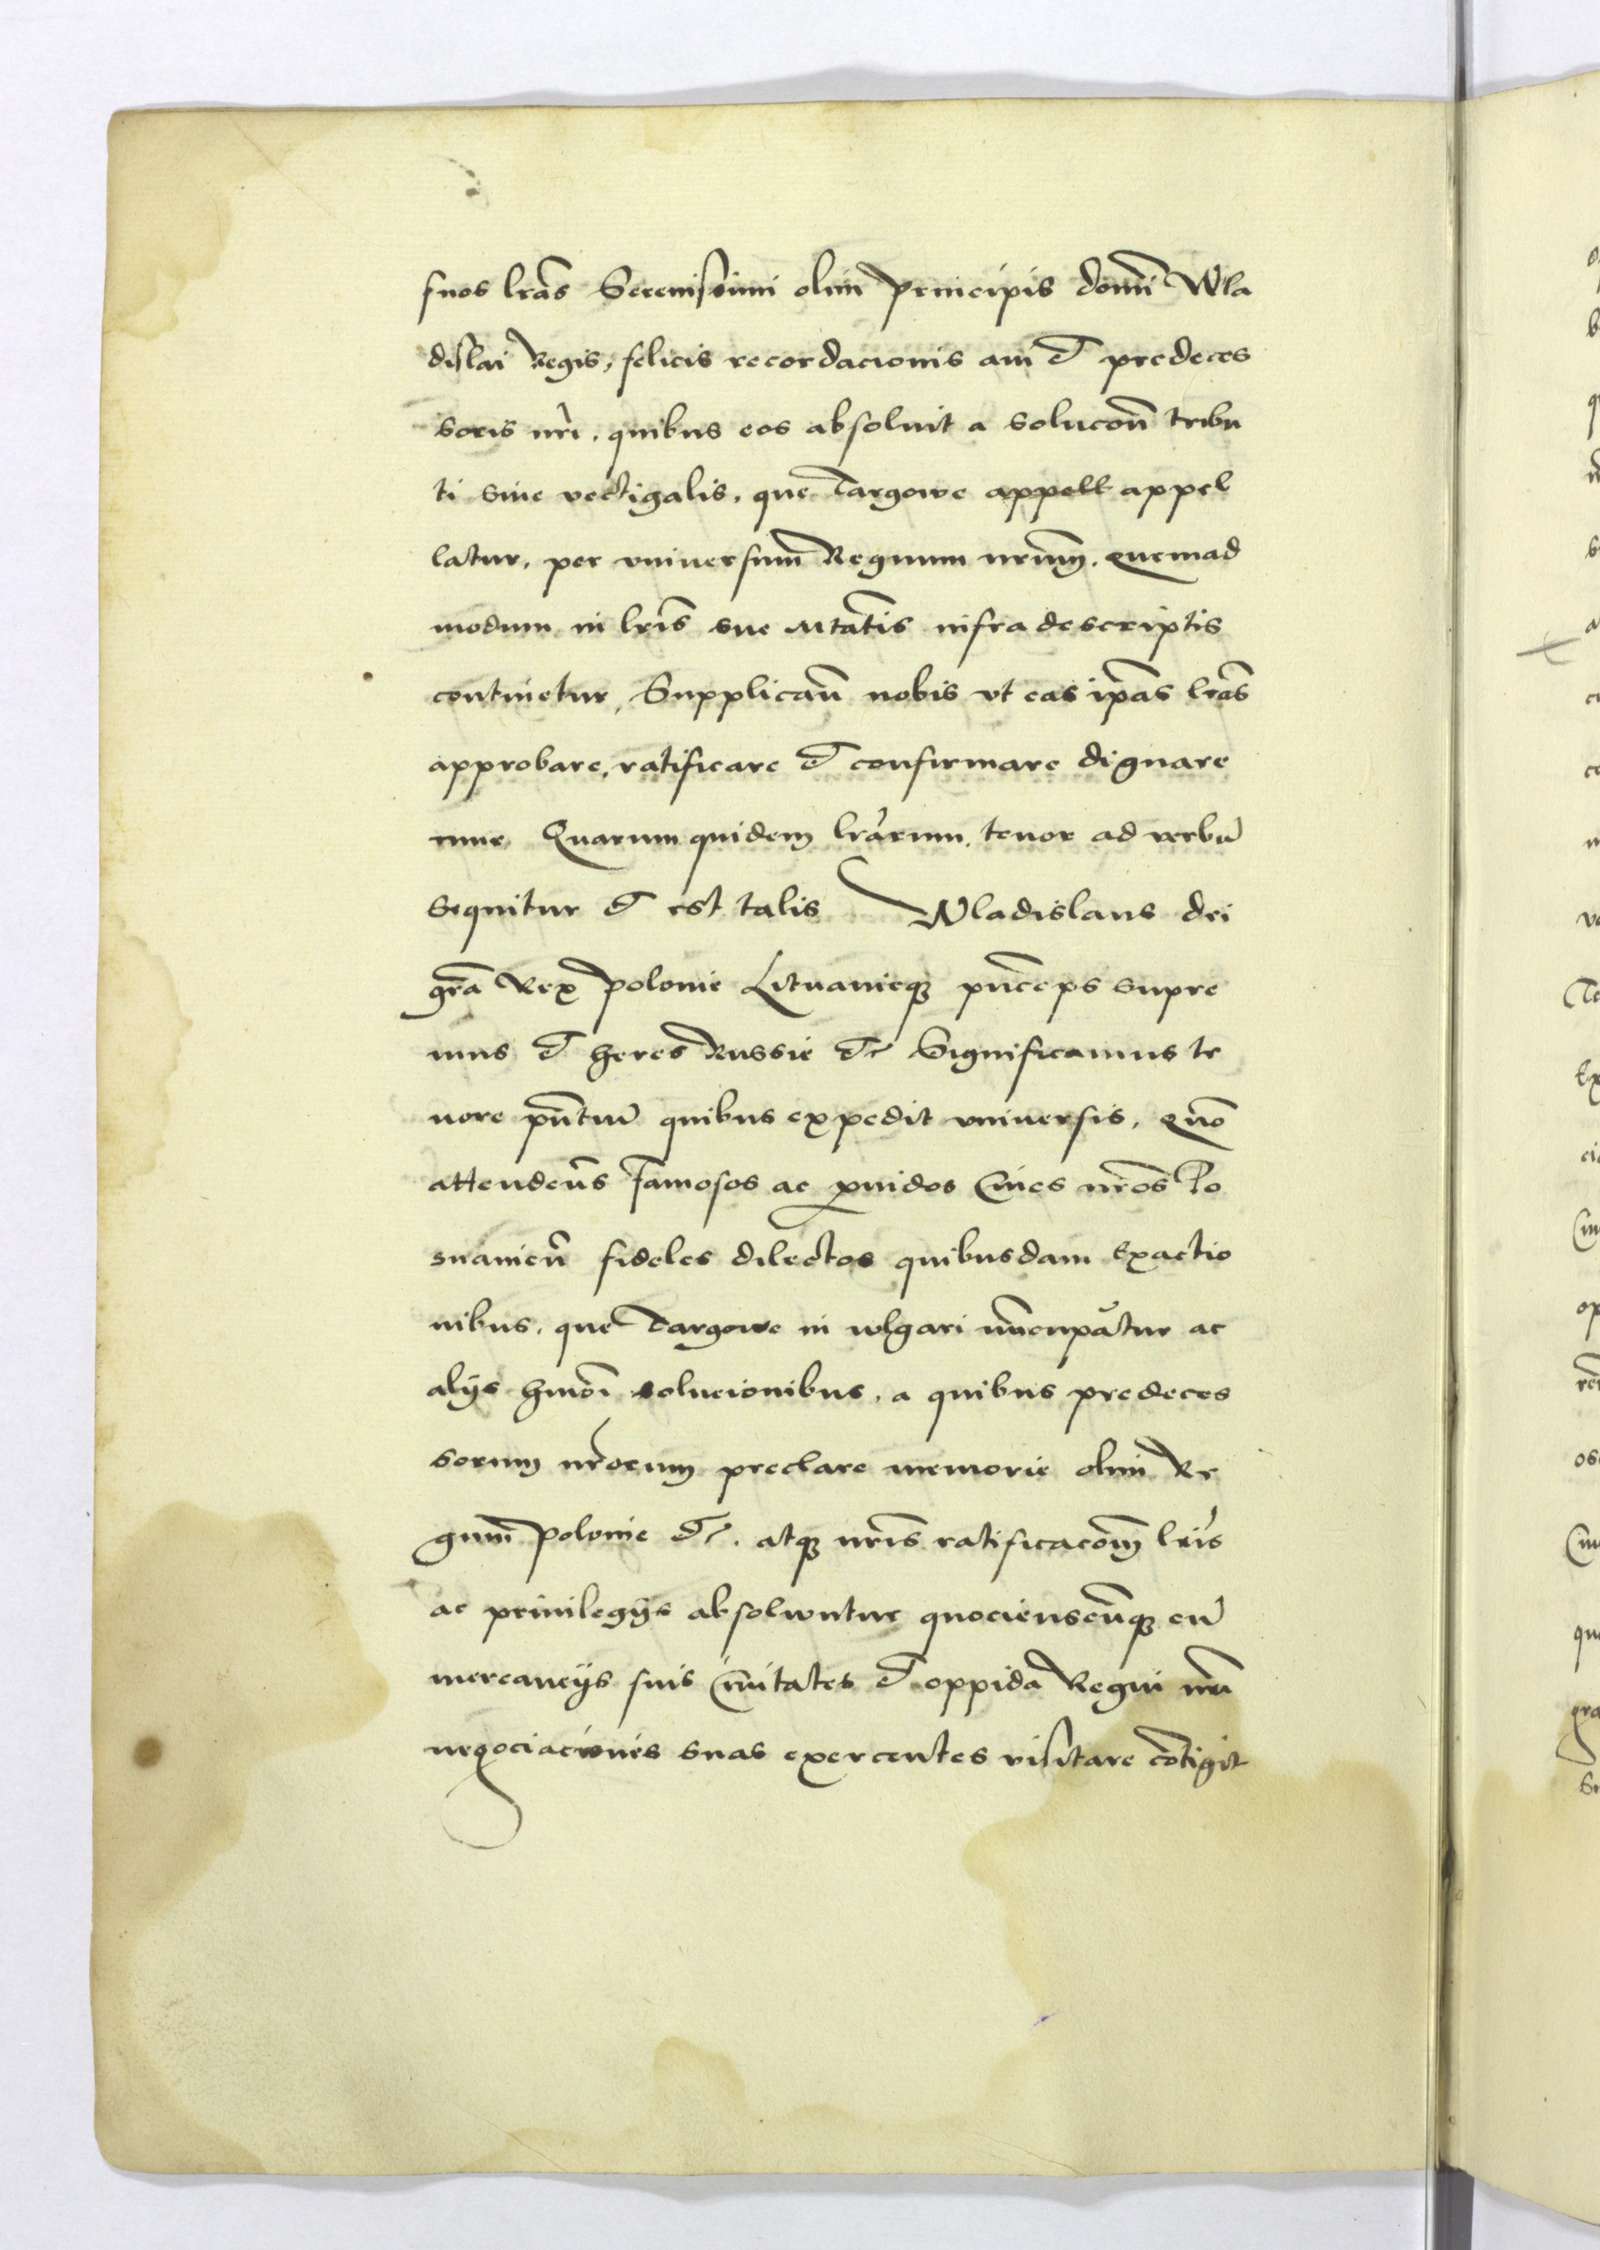 suos lr̃as Serenissimi olim Principis domni Wla
dislai Regis, felicis recordacionis aui et predeces
soris nr̃i, quibus eos absoluit a solucoñ tribu
ti siue vectigalis, que Targowe appell appel
latur, per vniuersum Regnum nrum̃, quemad
modum in lr̃is sue Mtatis infra descriptis
continetur, Supplicañ nobis vt eas ip̃as lr̃as
approbare, ratificare et confirmare dignare
mur, Quarum quidem lr̃arum, tenor ad verbũ
sequitur et est talis Wladislaus dei
gr̃a Rex Polonie Lituanieq; pñceps supre
mus et heres Russie etc Significamus te
nore pñtiũ quibus expedit vniuersis, Quõ
attendeñs famosos ac prouidos Ciues nr̃os Po
snanieñ fideles dilectos quibusdam Exactio
nibus, que Targowe in wlgari nũcupãtur ac
alijs hmõi solucionibus, a quibus predeces
sorum nr̃orum preclare memorie olim Re
gum Polonie etc. atq; nr̃is ratificacoñm lr̃is
ac priuilegijs absoluuntur quocienscũq; cũ
mercancijs suis Ciuitates et oppida Regni nr̃i
negociaciones suas exercentes visitare cõtigit